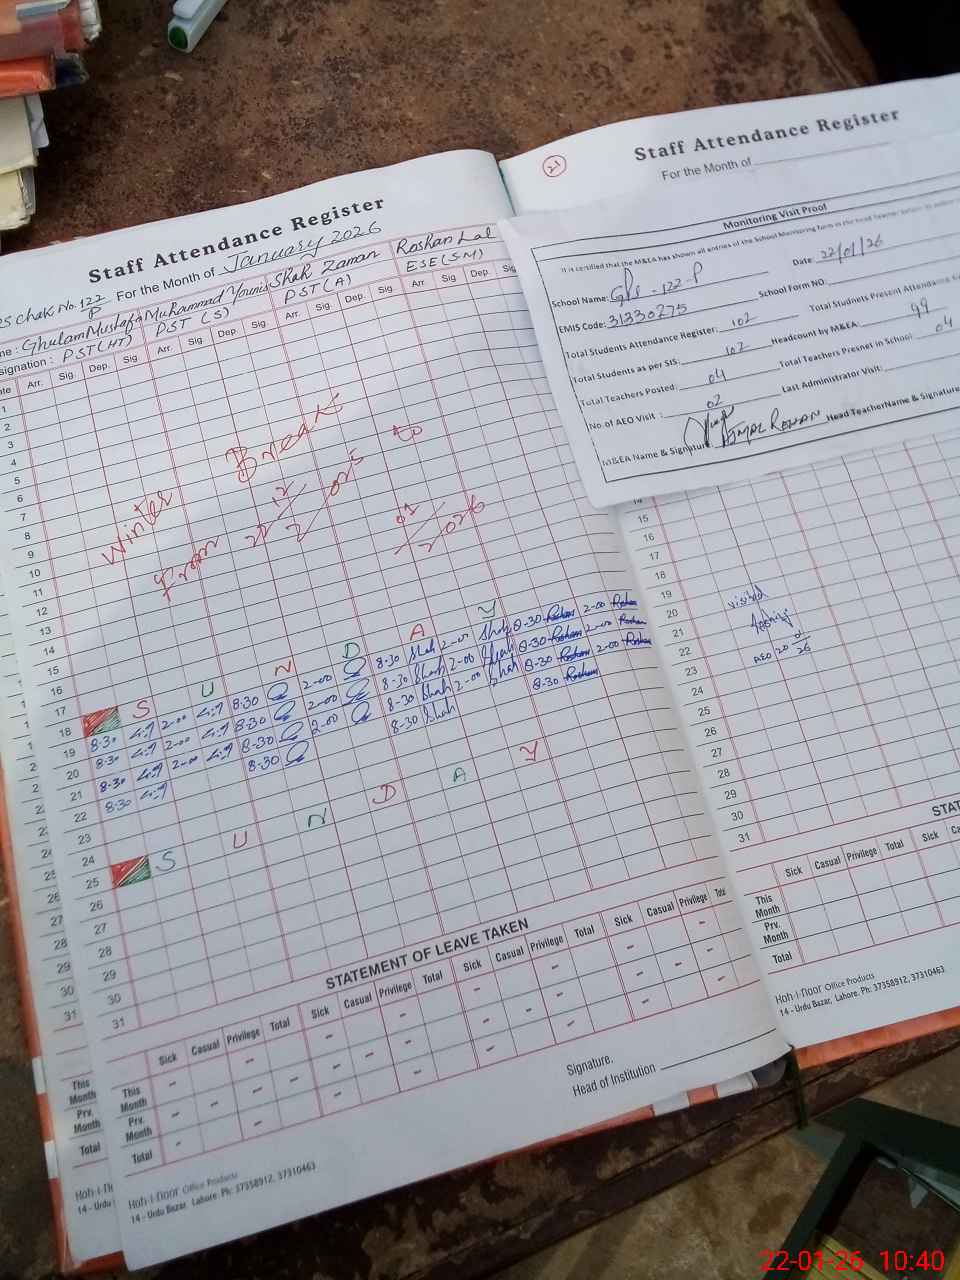 Staff Attendance Register
For the Month of January 2026
Chak No. 122
P
Ghulam Mustafa Muhammad Younis Shah Zaman Roshan Lal
signation : PST(HT) PST (S) PST (A) ESE (SM)
Arr. Sig. Dep. Sig. Arr. Sig. Dep. Sig. Arr. Sig. Dep. Sig. Arr. Sig. Dep. Sig.
1
2
3
4
5
6
7
8
9
10
11
12
13
14
15
16
17
Winter Break
From 22/12/2025 to
2026
18 S U N D A Y
19 8.30 2-00 8.30 2-00 8-30 Shah 2-00 Shah 8-30 Roshan 2-00 Roshan
20 8.30 2-00 8-30 2-00 8-30 Shah 2-00 Shah 8-30 Roshan 2-00 Roshan
21 8-30 2-00 8-30 2-00 8-30 Shah 2-00 Shah 8-30 Roshan 2-00 Roshan
22 8-30 8-30 8-30 Shah 8-30 Roshan
23
24
25 S U N D A Y
26
27
28
29
30
31
STATEMENT OF LEAVE TAKEN
Sick Casual Privilege Total Sick Casual Privilege Total Sick Casual Privilege Total Sick Casual Privilege
This Month
Prv. Month
Total
Signature.
Head of Institution
Koh-i-noor Office Products
14 - Urdu Bazar, Lahore. Ph: 37358912, 37310463
21
Staff Attendance Register
For the Month of
Monitoring Visit Proof
It is certified that the M&EA has shown all entries of the School Monitoring form to the Head Teacher before
School Name: GPS - 122-P Date: 22/01/26
EMIS Code: 31330275 School Form NO:
Total Students Attendance Register: 102 Total Studnets Present Attendance
Total Students as per SIS: 102 Headcount by M&EA: 99
Total Teachers Posted: 04 Total Teachers Presnet in School: 04
No. of AEO Visit : 02 Last Administrator Visit:
M&EA Name & Signature Head TeacherName & Signature
15
16
17
18
19
20
21
22
23
24
25
26
27
28
29
30
31
visited
AEO 20 01
26
STAT
Sick Casual Privilege Total Sick
This Month
Prv. Month
Total
Koh-i-noor Office Products
14 - Urdu Bazar, Lahore. Ph: 37358912, 37310463
28
29
30
31
This Month
Prv. Month
Total
Koh-i-n
14 - Urdu
22-01-26 10:40